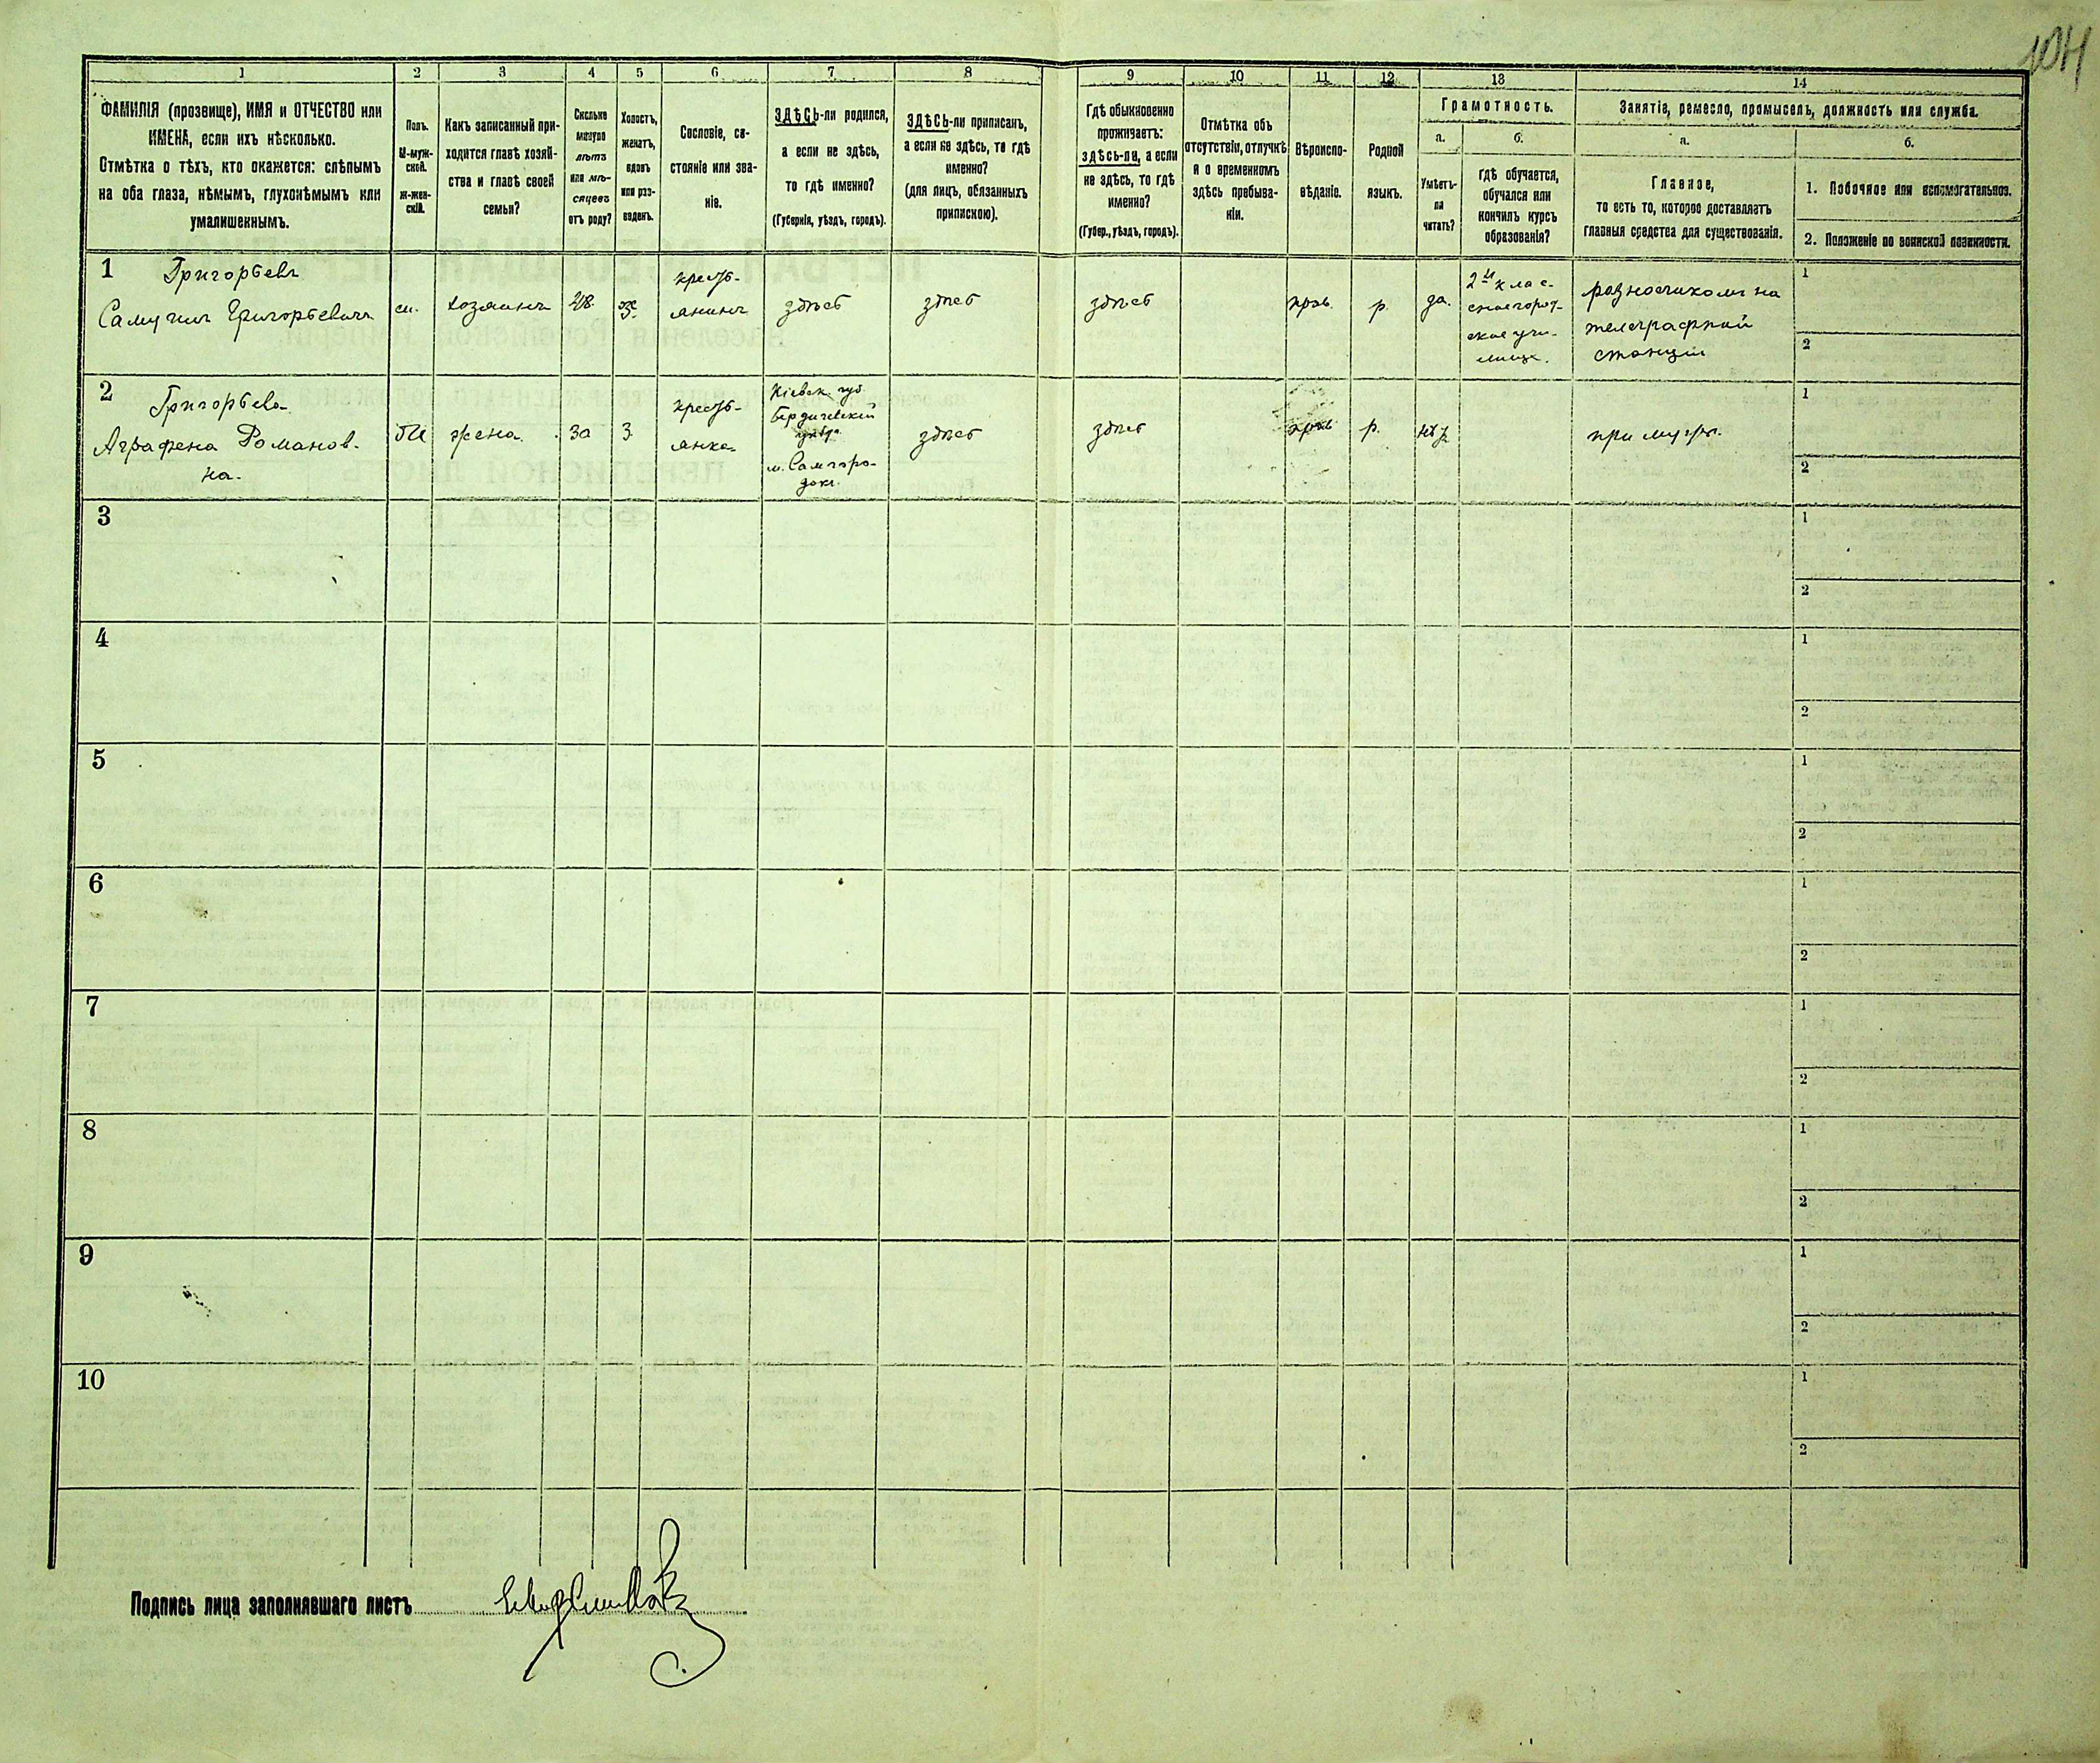 104
1 2 3 4 5 6 7 8 9 10 11 12 13 14
ФАМИЛІЯ (прозвище), ИМЯ и ОТЧЕСТВО или
ИМЕНА, если ихъ нѣсколько.
Отмѣтка о тѣхъ, кто окажется: слѣпымъ
на оба глаза, нѣмымъ, глухонѣмымъ или
умалишеннымъ.
Полъ.
М-муж-
ской.
Ж-жен-
скій.
Какъ записанный при-
ходится главѣ хозяй-
ства и главѣ своей
семьи?
Сколько
минуло
лѣтъ
или мѣ-
сяцевъ
отъ роду?
Холостъ,
женатъ,
вдовъ
или раз-
веденъ.
Сословіе, со-
стояніе или зва-
ніе.
ЗДѢСЬ-ли родился,
а если не здѣсь,
то гдѣ именно?
(Губернія, уѣздъ, городъ).
ЗДѢСЬ-ли приписанъ,
а если не здѣсь, то гдѣ
именно?
(для лицъ, обязанныхъ
припискою).
Гдѣ обыкновенно
проживаетъ:
здѣсь-ли, а если
не здѣсь, то гдѣ
именно?
(Губер., уѣздъ, городъ).
Отмѣтка объ
отсутствіи, отлучкѣ
и о временномъ
здѣсь пребыва-
ніи.
Вѣроиспо-
вѣданіе.
Родной
языкъ.
Грамотность.
а.
Умѣетъ-
ли
читать?
б.
гдѣ обучается,
обучался или
кончилъ курсъ
образованія?
Занятіе, ремесло, промыселъ, должность или служба.
а.
Главное,
то есть то, которое доставляетъ
главныя средства для существованія.
б.
1. Побочное или вспомогательное.
2. Положеніе по воинской повинности.
1 Григорьевъ
Самуилъ Григорьевичъ
м.
хозяинъ
28
ж
кресть-
янинъ
здѣсь
здѣсь
здѣсь
прав.
р.
да.
2хъ клас-
сное город-
ское учи-
лище.
разносчикомъ на
телеграфной
станціи
1
2
2 Григорьева
Аграфена Романов-
на.
жена.
30
З
кресть-
янка
Кіевск. губ
Бердичевскій
уѣздъ
м. Самгоро-
докъ.
здѣсь
здѣсь
прав
р.
нѣт
при мужѣ.
1
2
3
1
2
4
1
2
5
1
2
6
1
2
7
1
2
8
1
2
9
1
2
10
1
2
Подпись лица заполнявшаго листъ